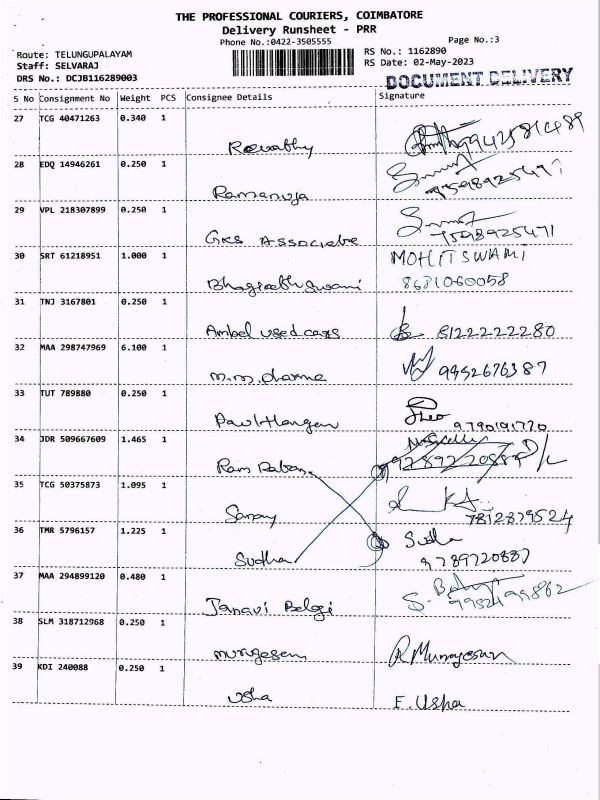 THE PROFESSIONAL COURIERS, COIMBATORE
Delivery Runsheet - PRR
Phone No.:0422-3505555
Page No.:3
Route: TELUNGUPALAYAM
RS No.: 1162890
Staff: SELVARAJ
RS Date: 02-May-2023
DRS No.: DCJB116289003
DOCUMENT DELIVERY
S No Consignment No Weight PCS Consignee Details Signature
27 TCG 40471263 0.340 1
Revathy 9942581489
28 EDQ 14946261 0.250 1
Ramanuja 9598925471
29 VPL 218307899 0.250 1
GKS Associate 7598925471
30 SRT 61218951 1.000 1 MOHIT SWAMI
Bhagirathswami 8681060058
31 TNJ 3167801 0.250 1
Ambel used cars 8122222280
32 MAA 298747969 6.100 1
M.M. Dharma 9952676387
33 TUT 789880 0.250 1
Paul Hangen 9790191720
34 JDR 509667609 1.465 1
Ram Raban D/L
35 TCG 50375873 1.095 1
Sanay 7812879524
36 TMR 5796157 1.225 1 Sudha
Sudha 9789720887
37 MAA 294899120 0.480 1
Janavi Belgi
38 SLM 318712968 0.250 1
Murugesan R Murugesan
39 KDI 240088 0.250 1
Usha E. Usha